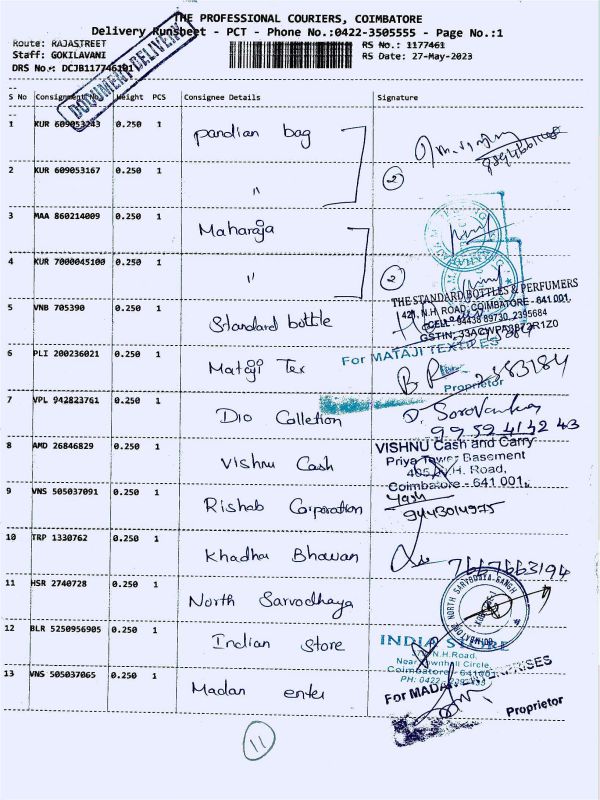 THE PROFESSIONAL COURIERS, COIMBATORE
Delivery Runsheet - PCT - Phone No.:0422-3505555 - Page No.:1
Route: RAJASTREET
RS No.: 1177461
Staff: GOKILAVANI
RS Date: 27-May-2023
DRS No.: DCJB117746101
DOCUMENT DELIVERY
S No Consignment No Weight PCS Consignee Details Signature
1 KUR 609053243 0.250 1 pandian bag
2 KUR 609053167 0.250 1 " 2
3 MAA 860214009 0.250 1 Maharaja
4 KUR 7000045100 0.250 1 " 2
THE STANDARD BOTTLES & PERFUMERS
421, N.H. ROAD, COIMBATORE - 641 001.
CELL: 94438 89730, 2395684
5 VNB 705390 0.250 1 Standard bottle
For MATAJI TEXTILES
6 PLI 200236021 0.250 1 Mataji Tex
Proprietor
7 VPL 942823761 0.250 1 Dio Calletion
VISHNU Cash and Carry
8 AMD 26846829 0.250 1 Vishnu Cash
Priya Tower Basement
N.H. Road,
Coimbatore - 641 001.
9 VNS 505037091 0.250 1 Rishab Corporation
9443014975
10 TRP 1330762 0.250 1 Khadha Bhawan
7667663194
11 HSR 2740728 0.250 1 North Sarvodhaya
NORTH SARVODAYA SANGH
12 BLR 5250956905 0.250 1 Indian Store
INDIA STORE
N.H.Road,
Near Townhall Circle,
Coimbatore - 641001
13 VNS 505037065 0.250 1 Madan enter
Proprietor
11